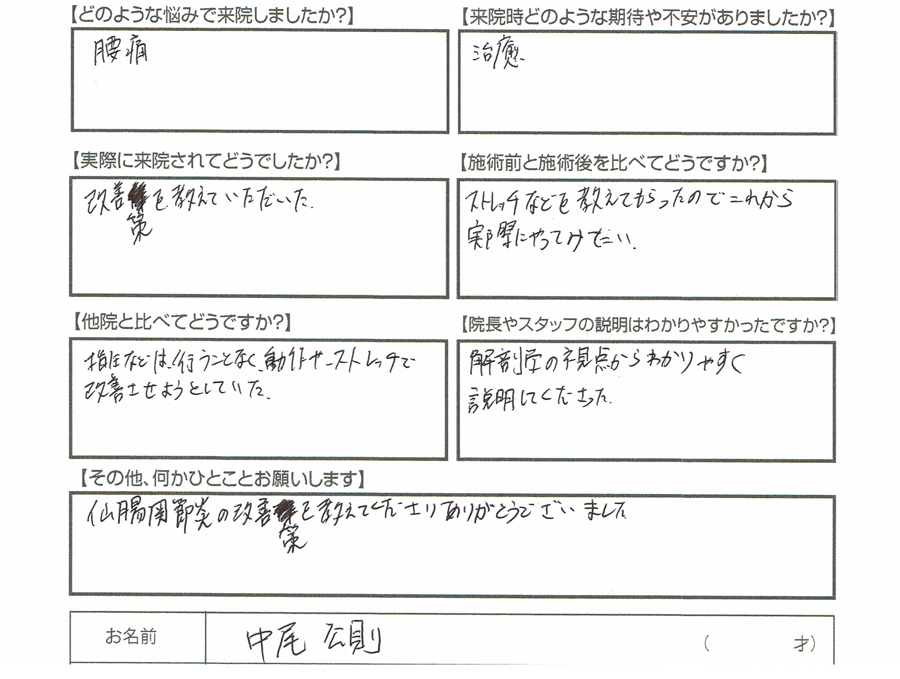 【どのような悩みで来院しましたか?】
腰痛
【来院時どのような期待や不安がありましたか?】
治癒
【実際に来院されてどうでしたか?】
改善策を教えていただいた。
【施術前と施術後を比べてどうですか?】
ストレッチなどを教えてもらったのでこれから
実際にやってみたい。
【他院と比べてどうですか?】
指圧などは行うことなく、動作やストレッチで
改善させようとしていた。
【院長やスタッフの説明はわかりやすかったですか?】
解剖学の視点からわかりやすく
説明してくださった。
【その他、何かひとことお願いします】
仙腸関節炎の改善策を教えてくださりありがとうございました
お名前
中尾 公則
( 才)